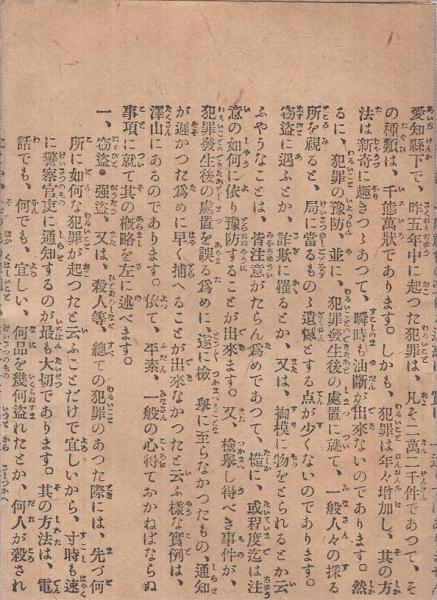 愛知縣下で、昨五年中に起つた犯罪は、凡そ二萬二千件であつて、そ
の種類は、千態萬狀であります。しかも、犯罪は年々增加し、其の方
法は新奇に趨きつゝあつて、瞬時も油斷が出來ないのであります。然
るに、犯罪の豫防、並に、犯罪發生後の處置に就て、一般人々の採る
所を視ると、局に當るもの、遺憾とする点が少くないのであります。
窃盜に遇ふとか、詐欺に罹るとか、又は、掏模に物をとられるとか云
ふやうなことは、皆注意がたらん爲めであつて、慥に、或程度迄は注
意の如何に依り豫防することが出來ます。又、檢擧し得べき事件が、
犯罪發生後の處置を誤る爲めに、遂に檢擧に至らなかつたもの、通知
が遲かつた爲めに早く捕へることが出來なかつたと云ふ樣な實例は、
澤山にあるのであります。依て、平素、一般の心得ておかねばならぬ
事項に就て其の概略を左に述べます。
一、窃盜。强盜、又は、殺人等、總ての犯罪のあつた際には、先づ何
所に如何な犯罪が起つたと云ふことだけで宜しいから、寸時も速
に警察官吏に通知するのが最も大切であります。其の方法は、電
話でも、何でも、宜しい、何品を幾何盜れたとか、何人が殺され